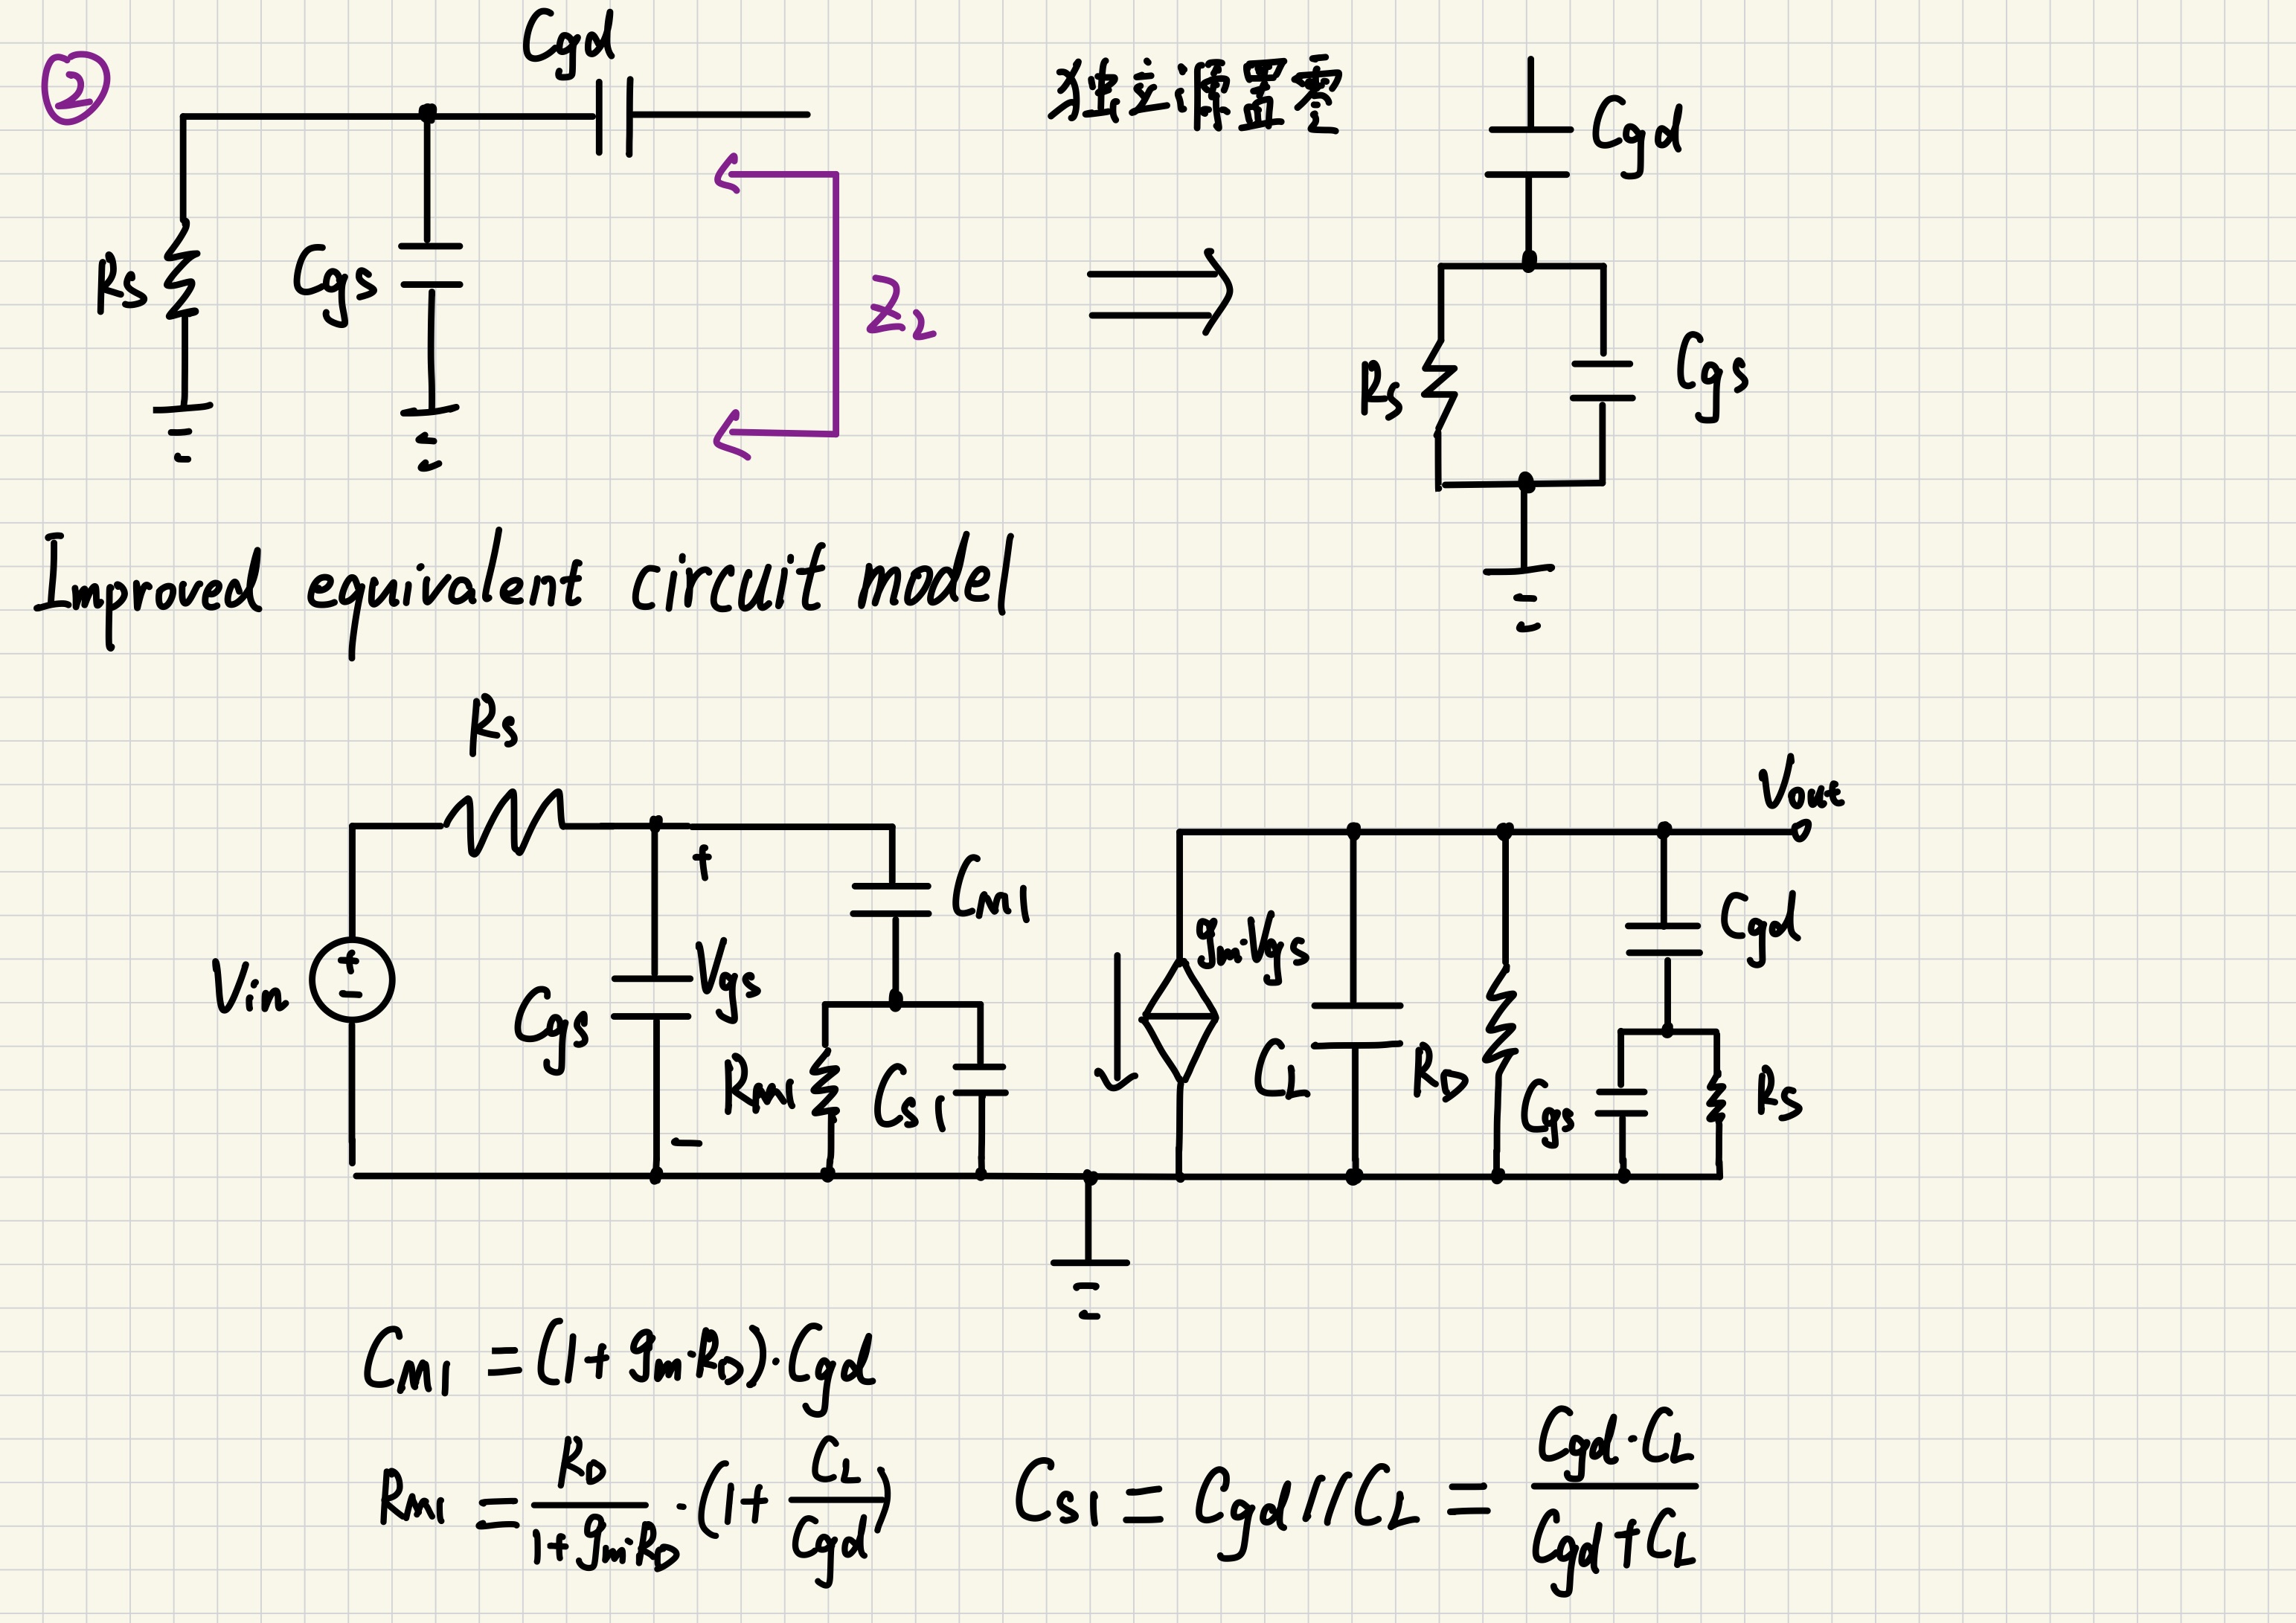 ②
Cgd
Rs
Cgs
Z₂
独立源置零
Cgd
Rs
Cgs
Improved equivalent circuit model
Rs
Vin
+
-
Cgs
+
Vgs
-
CM1
RM1
CS1
gm·Vgs
CL
RD
Cgd
Cgs
Rs
Vout
CM1 = (1 + gm·RD)·Cgd
RM1 = RD / (1 + gm·RD) · (1 + CL / Cgd)
CS1 = Cgd // CL = Cgd·CL / (Cgd + CL)